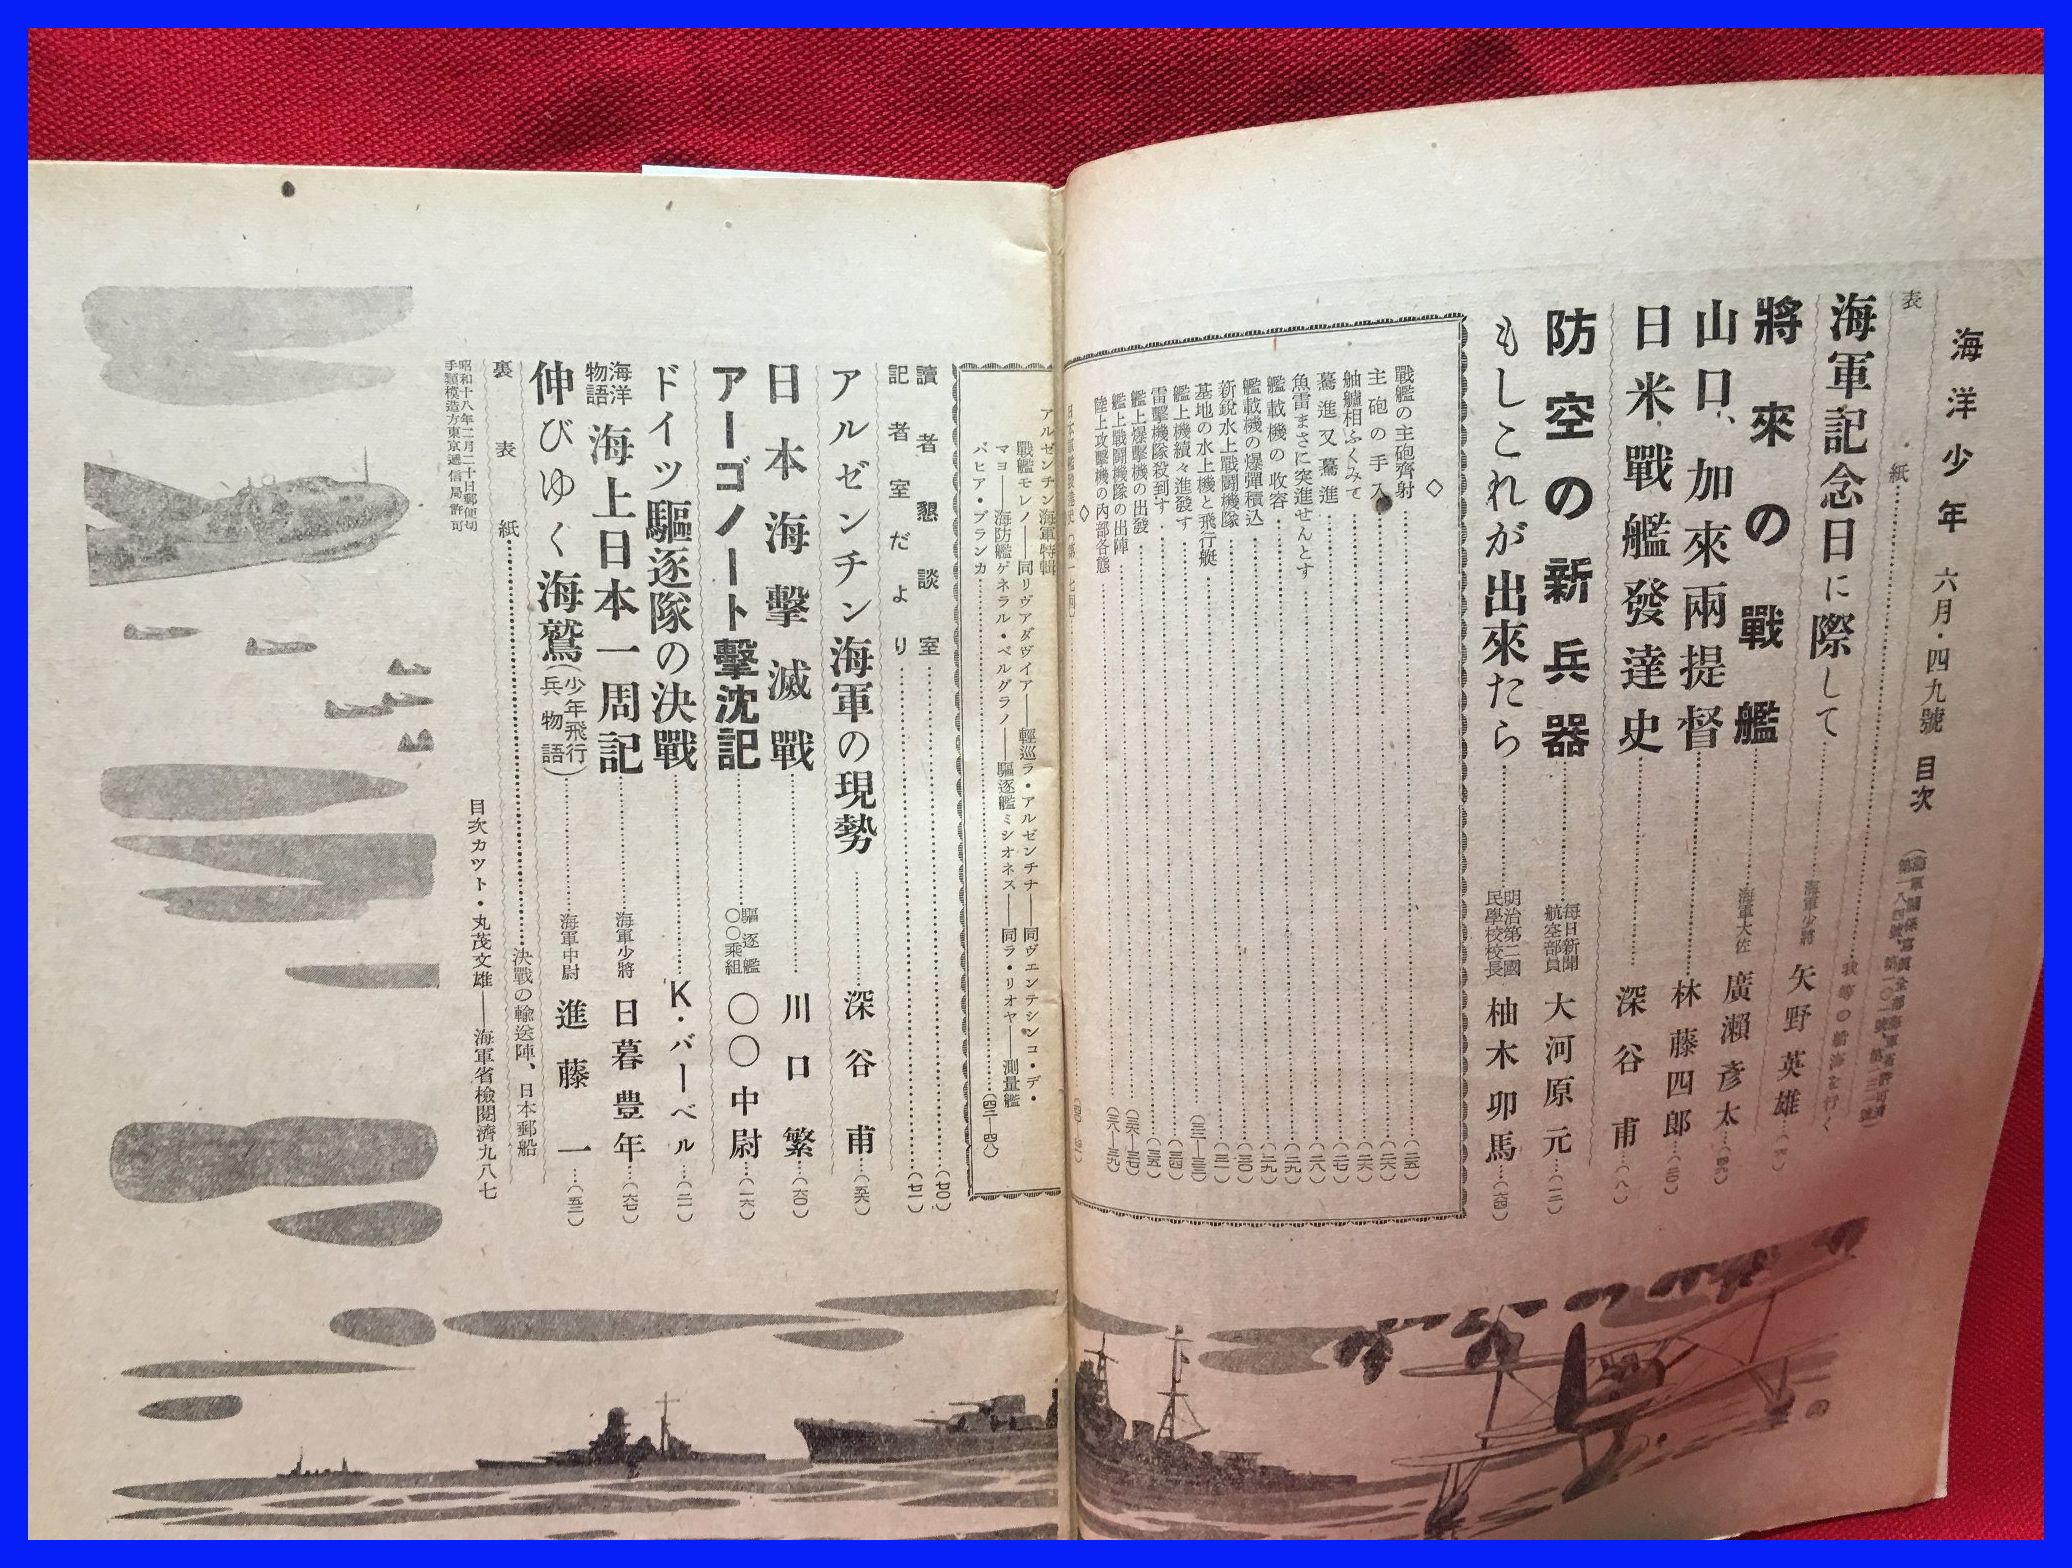 海洋少年 六月・四九號 目次
表紙
我等の
海軍記念日に際して 海軍少將 矢野英雄
將來の戰艦 海軍大佐 廣瀨彥太
山口、加來兩提督 林藤四郎
日米戰艦發達史 深谷甫 (八)
防空の新兵器 每日新聞航空部員 大河原元 (一二)
もしこれが出來たら 明治第二國民學校校長 柚木卯馬 (六四)
◇
戰艦の主砲齊射 (二五)
主砲の手入 (二六)
舳艫相ふくみて (二六)
驀進又驀進 (二七)
魚雷まさに突進せんとす (二八)
艦載機の收容 (二九)
艦載機の爆彈積込 (二九)
新銳水上戰鬪機隊 (三〇)
基地の水上機と飛行艇 (三一)
艦上機續々進發す (三四)
雷擊機隊殺到す (三五)
艦上爆擊機の出發 (三六—三七)
艦上戰鬪機隊の出陣 (三八—三九)
陸上攻擊機の內部各態
◇
アルゼンチン海軍特輯
戰艦モレノ——同リヴァダヴイア——輕巡ラ・アルゼンチナ——同ヴエンテシンコ・デ・
マヨ——海防艦ゲネラル・ベルグラノ——驅逐艦ミシオネス——同ラ・リオヤ——測量艦
バヒア・ブランカ (四三—四八)
讀者懇談室 (七〇)
記者室だより (七一)
アルゼンチン海軍の現勢 深谷甫 (五六)
日本海擊滅戰 川口繁 (六〇)
アーゴノート擊沈記 驅逐艦〇〇乘組 〇〇中尉 (一六)
ドイツ驅逐隊の決戰 K・バーベル (二一)
海洋物語 海上日本一周記 海軍少將 日暮豊年 (六七)
伸びゆく海鷲(少年飛行兵物語) 海軍中尉 進藤一 (五二)
裏表紙 決戰の輸送陣、日本郵船
目次カツト・丸茂文雄——海軍省檢閱濟九八七
昭和十八年二月二十日郵便切
手類模造方東京遞信局許可